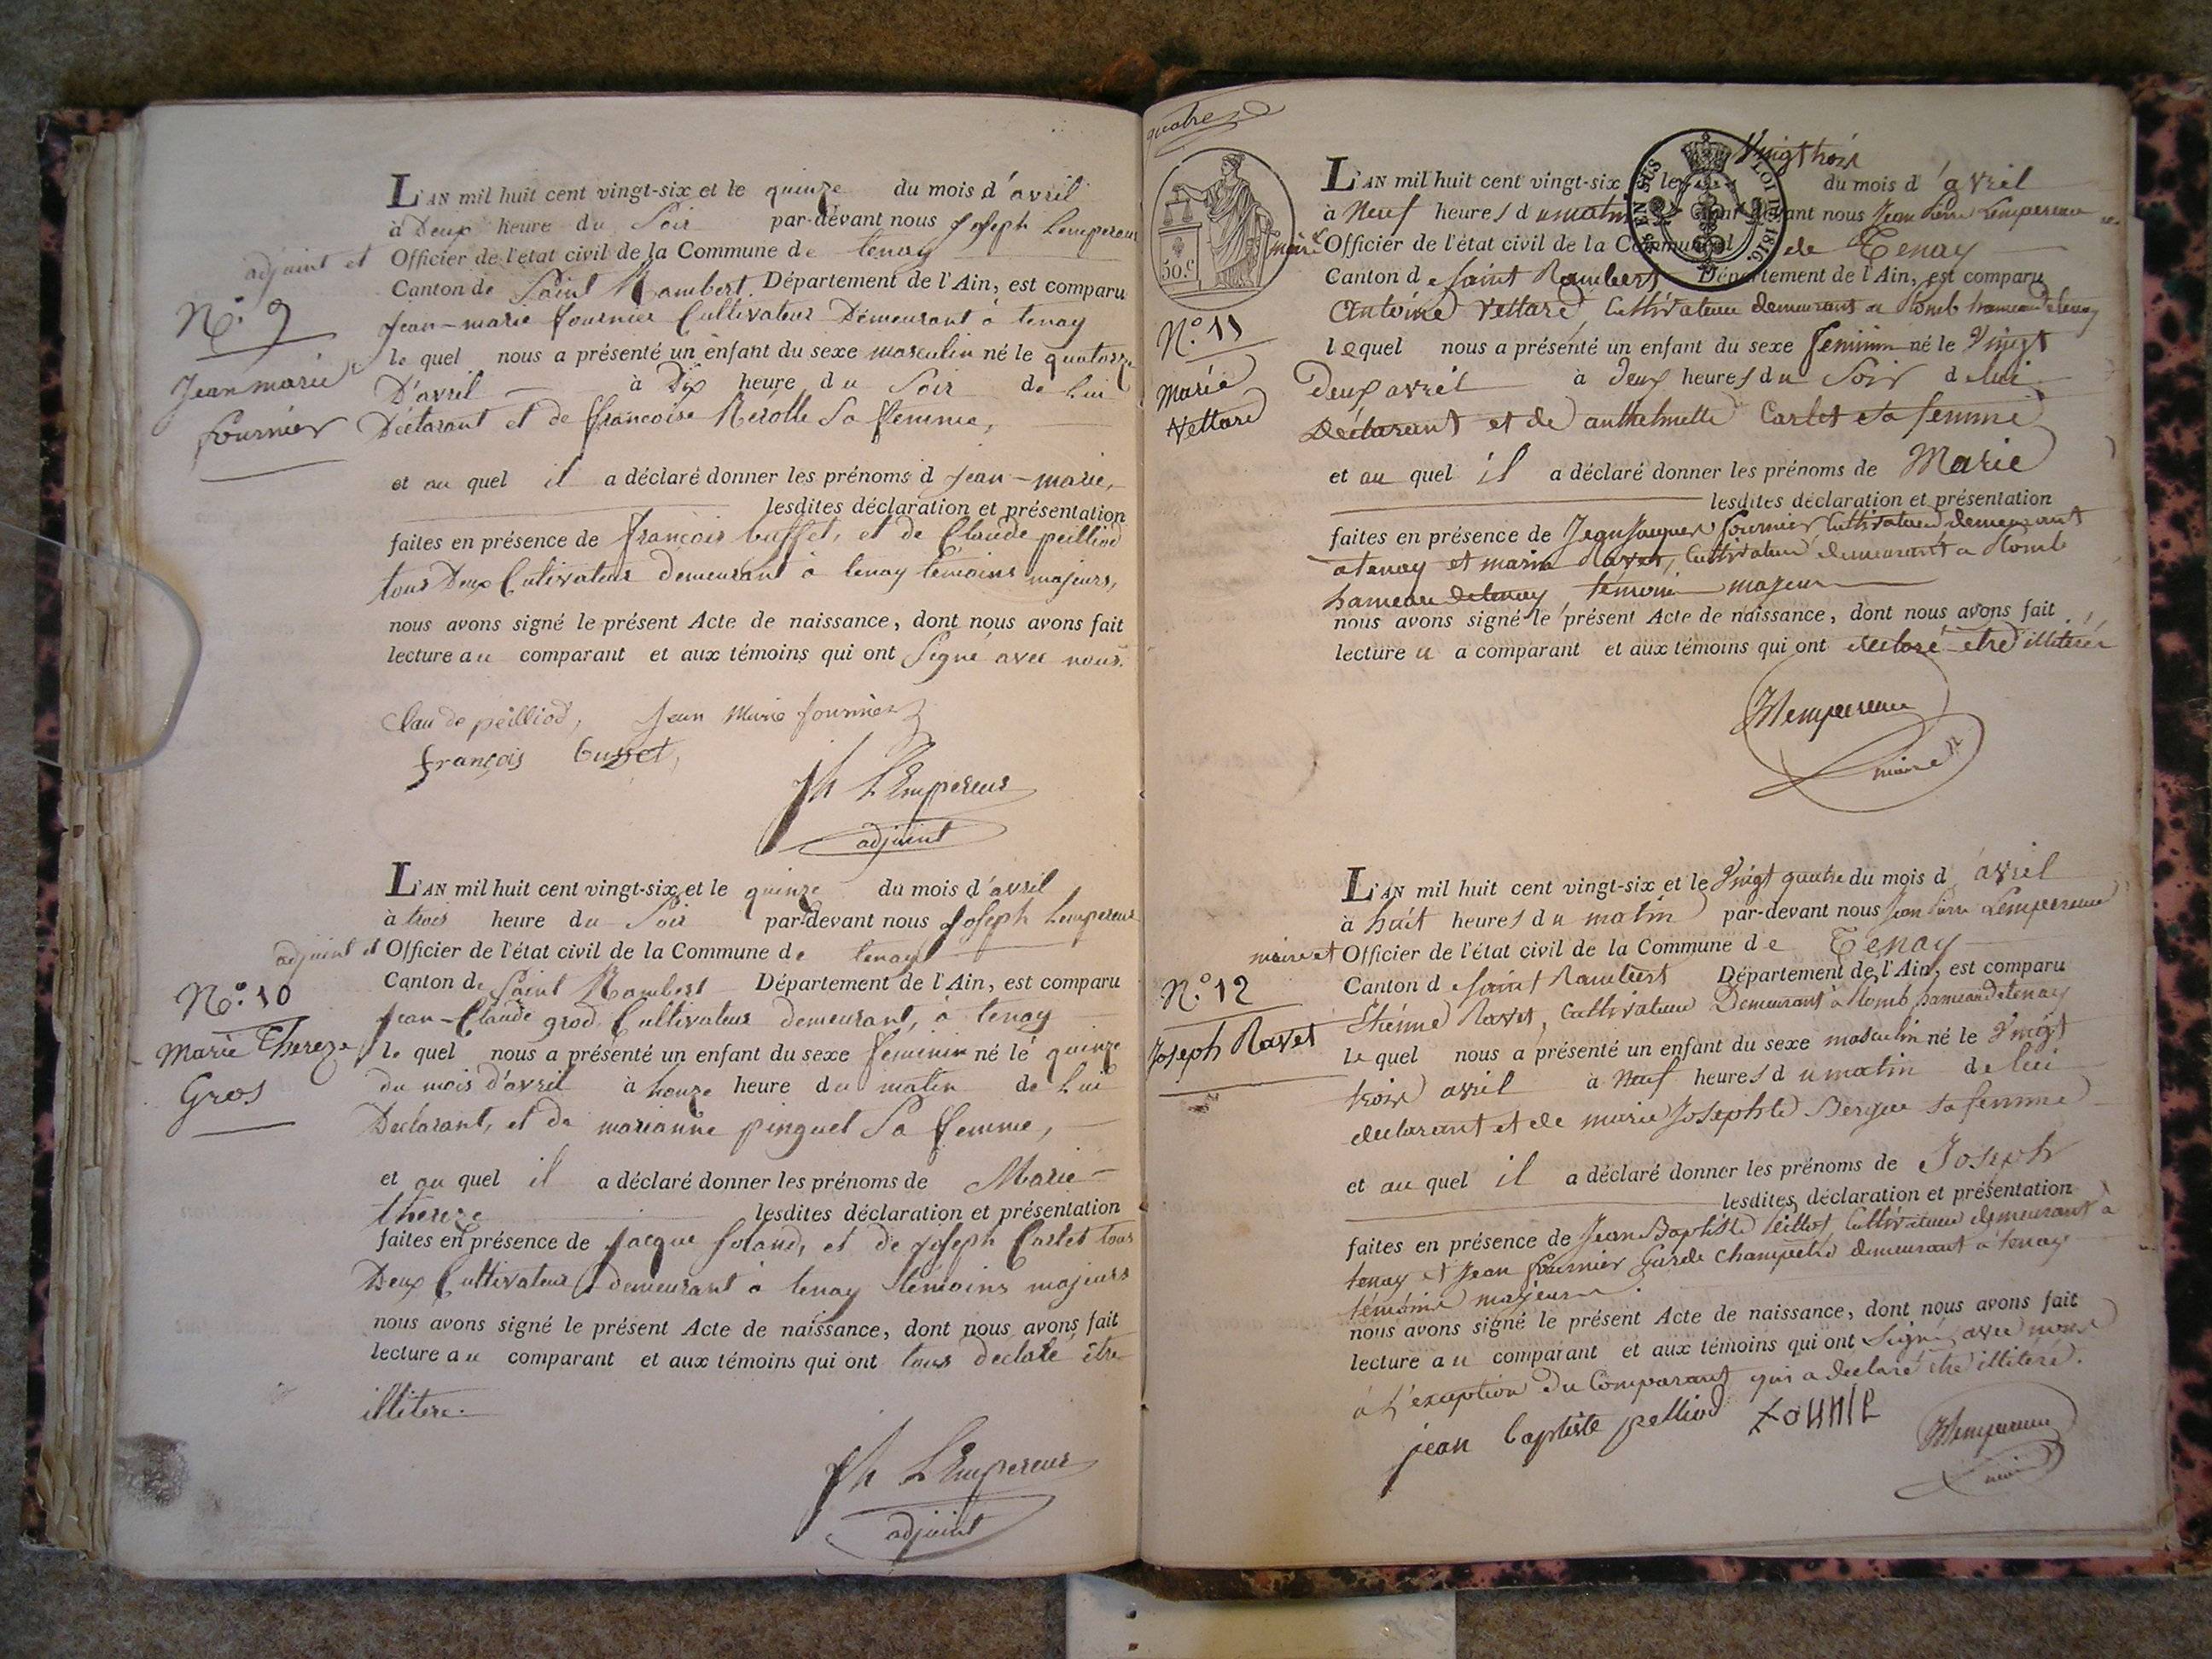 L'AN mil huit cent vingt-six et le quinze du mois d'avril
à Deux heure du Soir par-devant nous Joseph Lempereur
adjoint et Officier de l'état civil de la Commune de tenay
Canton de Saint Rambert Département de l'Ain, est comparu
N.o 9
Jean-marie fournier Cultivateur Démeurant à tenay
le quel nous a présenté un enfant du sexe masculin né le quatorze
Jean marie
D'avril à Dix heure du Soir de Lui
fournier
Déclarant et de françoise Rerolle Sa femme,
et au quel il a déclaré donner les prénoms d Jean-marie,
lesdites déclaration et présentation
faites en présence de françois buffet, et de Claude peilliod
tous Deux Cultivateur demeurant à tenay temoins majeurs,
nous avons signé le présent Acte de naissance, dont nous avons fait
lecture au comparant et aux témoins qui ont Signé avec nous.
Claude peilliod, Jean Marie fournier
françois buffet,
Jh LEmpereur
adjoint
L'AN mil huit cent vingt-six et le quinze du mois d'avril
à trois heure du Soir par-devant nous Joseph Lempereur
adjoint et Officier de l'état civil de la Commune de tenay
Canton de Saint Rambert Département de l'Ain, est comparu
N.o 10
Jean-Claude grod Cultivateur demeurant, à tenay
Marie Thereze
le quel nous a présenté un enfant du sexe feminin né le quinze
Gros
du mois d'avril à honze heure du matin de Lui
Declarant, et de marianne pinguet Sa femme,
et au quel il a déclaré donner les prénoms de Marie-
thereze lesdites déclaration et présentation
faites en présence de Jacque foland, et de Joseph Carlet tous
Deux Cultivateur demeurant à tenay témoins majeurs
nous avons signé le présent Acte de naissance, dont nous avons fait
lecture au comparant et aux témoins qui ont tous déclaré être
illitere.
Jh LEmpereur
adjoint
quatre
EN SUS
LOI DE 1816.
50.c
Vingt trois
L'AN mil huit cent vingt-six le du mois d'avril
à Neuf heures du matin devant nous Jean Pierre Lempereur
maire Officier de l'état civil de la Commune de Tenay
Canton de Saint Rambert Département de l'Ain, est comparu
N.o 11
Antoine Vettard, Cultivateur demeurant a Plomb hameau de tenay
lequel nous a présenté un enfant du sexe féminin né le Vingt
Marie
Vettard
Deux avril à deux heures du Soir de lui
Déclarant et de anthelmette Carlet Sa femme
et au quel il a déclaré donner les prénoms de Marie
lesdites déclaration et présentation
faites en présence de Jean Jaques fournier Cultivateur demeurant
a tenay et marin Ravet, Cultivateur demeurant a Plomb
hameau de tenay témoin majeur
nous avons signé le présent Acte de naissance, dont nous avons fait
lecture u a comparant et aux témoins qui ont declaré etre illiteré
JPLempereur
maire
L'AN mil huit cent vingt-six et le Vingt quatre du mois d avril
à huit heures du matin par-devant nous Jean Pierre Lempereur
maire et Officier de l'état civil de la Commune de Tenay
Canton de Saint Rambert Département de l'Ain, est comparu
N.o 12
Etienne Ravet, Cultivateur Demeurant à Plomb hameau de tenay
Joseph Ravet
Le quel nous a présenté un enfant du sexe masculin né le Vingt
trois avril à Neuf heures du matin de lui
declarant et de marie Josephte Bergue sa femme
et au quel il a déclaré donner les prénoms de Joseph
lesdites déclaration et présentation
faites en présence de Jean Baptiste Peilliod Cultivateur demeurant a
tenay et Jean fournier Garde Champetre demeurant à tenay
témoins majeurs.
nous avons signé le présent Acte de naissance, dont nous avons fait
lecture au comparant et aux témoins qui ont Signé avec nous
à L'exception Du Comparant qui a declaré etre illiteré.
jean baptiste pelliod fournie
JPLempereur
maire